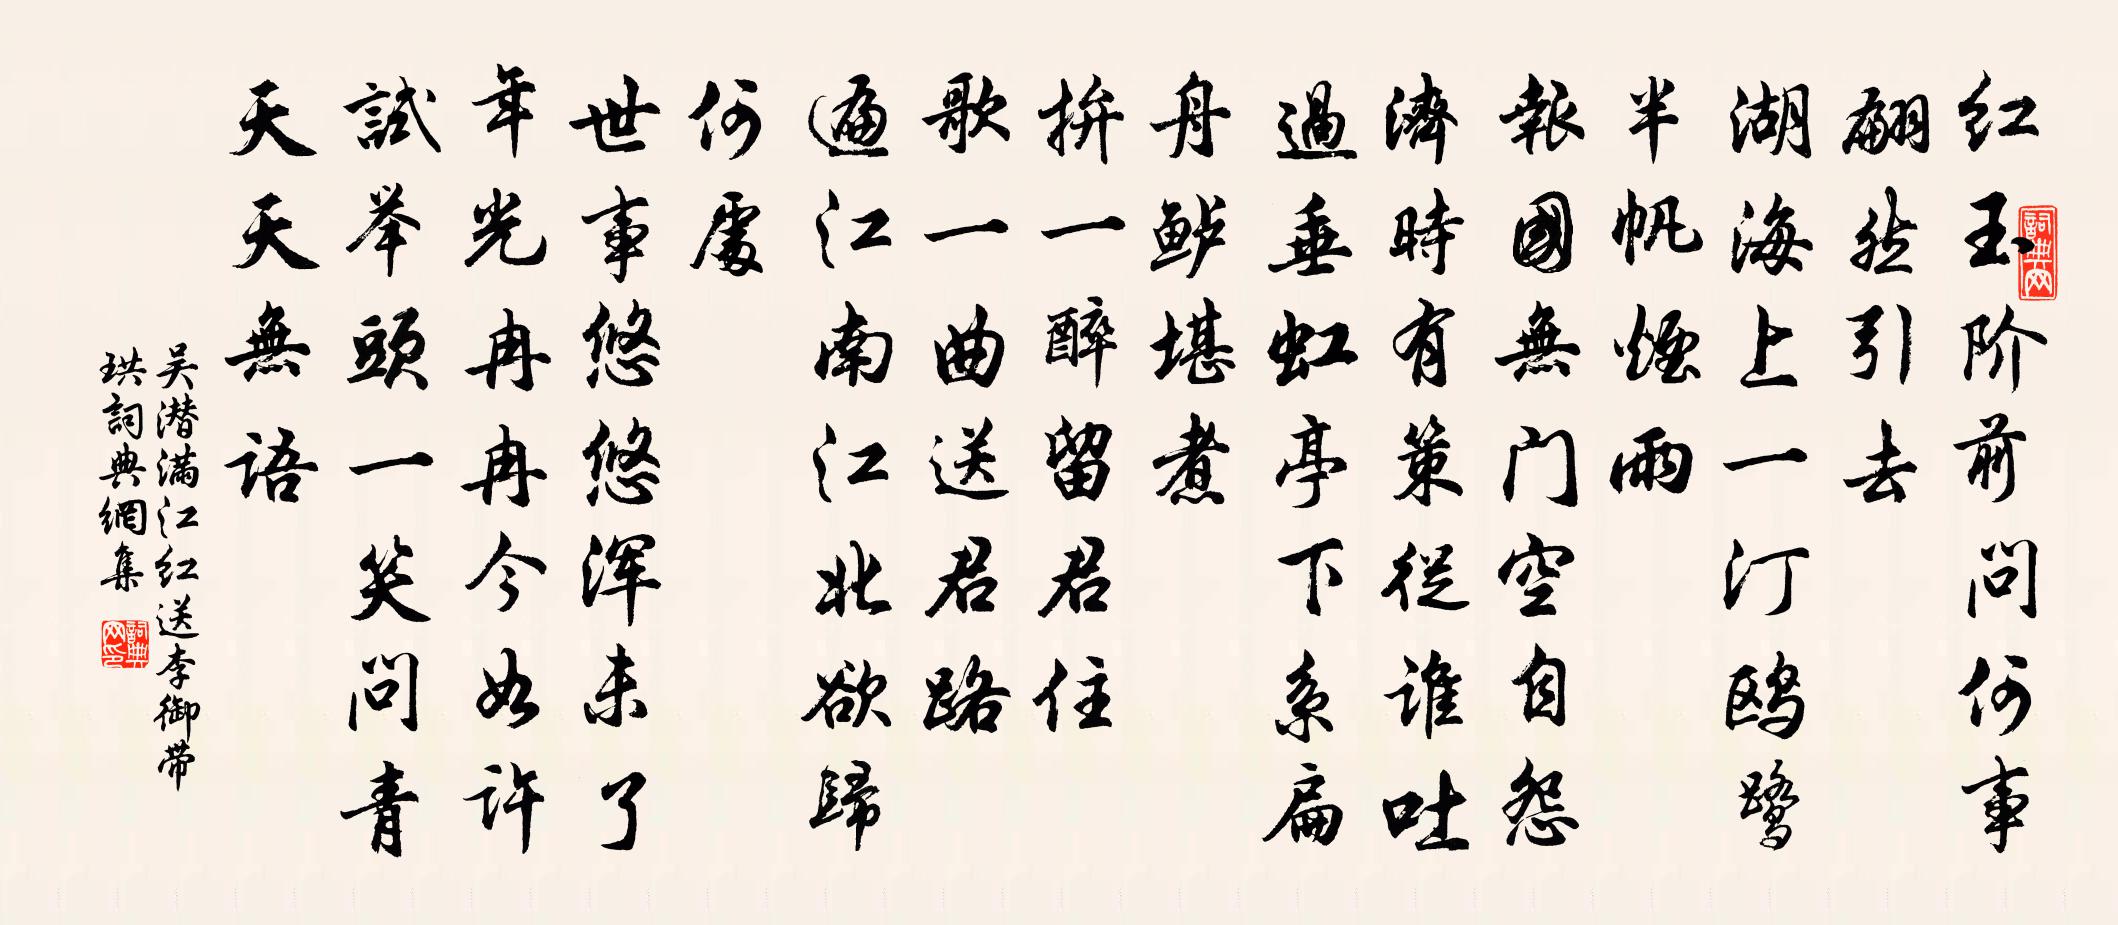 红玉阶前问何事
翩然引去
湖海上一汀鸥鹭
半帆煙雨
報國無门空自怨
濟時有策從谁吐
過垂虹亭下系扁
舟鲈堪煮
拚一醉留君住
歌一曲送君路
遍江南江北欲歸
何處
世事悠悠浑未了
年光冉冉今如许
試举頭一笑问青
天天無语
吴潜满江红送李御带
珙詞典網集
詞典网
詞典网印